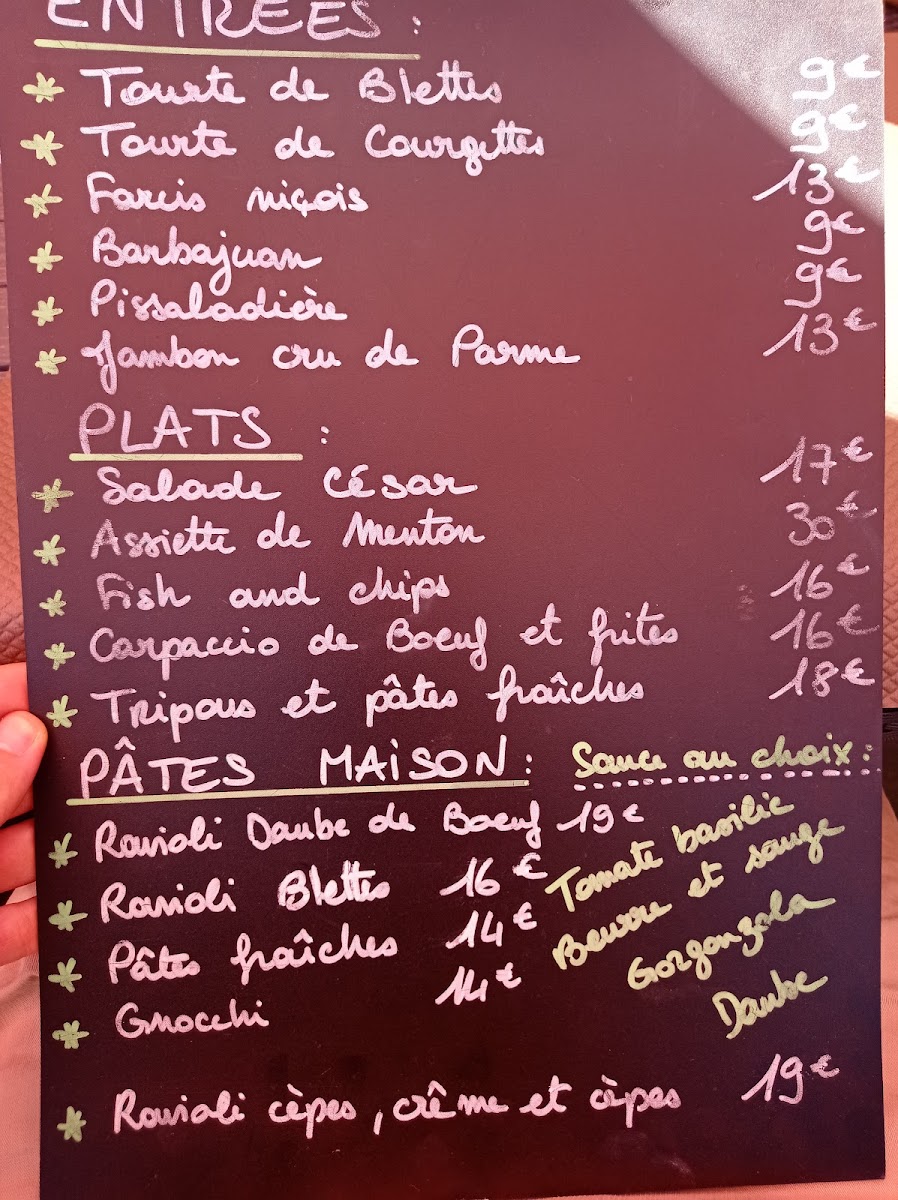 ENTREES :
* Tourte de Blettes 9€
* Tourte de Courgettes 9€
* Farcis niçois 13€
* Barbajuan 9€
* Pissaladière 9€
* Jambon cru de Parme 13€
PLATS :
* Salade César 17€
* Assiette de Menton 30€
* Fish and chips 16€
* Carpaccio de Boeuf et frites 16€
* Tripous et pâtes fraîches 18€
PÂTES MAISON : Sauce au choix :
* Ravioli Daube de Boeuf 19€
* Ravioli Blettes 16€
* Pâtes fraîches 14€
* Gnocchi 14€
Tomate basilic
Beurre et sauge
Gorgonzola
Daube
* Ravioli cèpes, crême et cèpes 19€